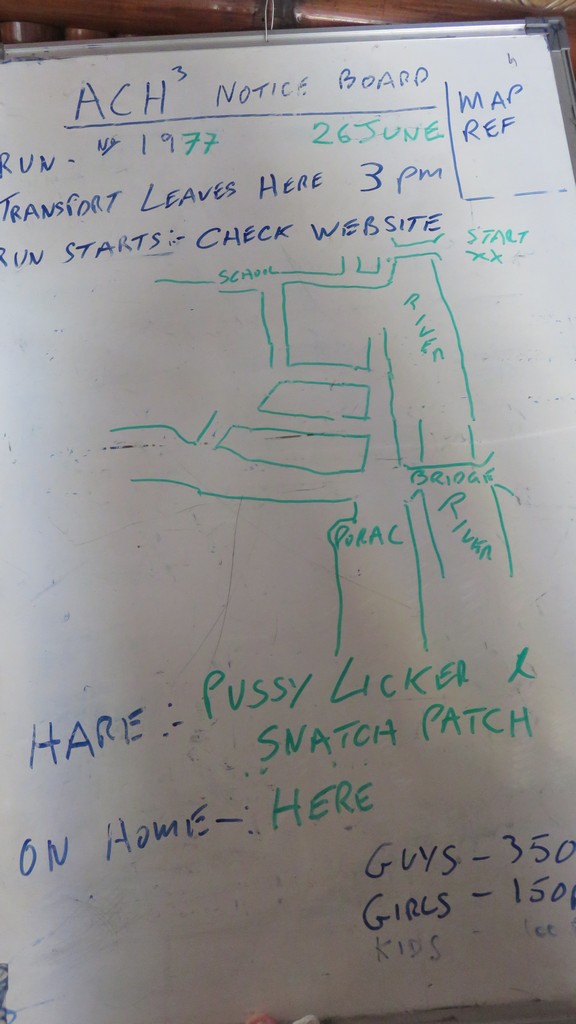 ACH³ NOTICE BOARD
MAP
REF
RUN - Nº 1977 26 JUNE
TRANSPORT LEAVES HERE 3 pm
RUN STARTS:- CHECK WEBSITE
START
XX
SCHOOL
RIVER
BRIDGE
RIVER
PORAC
HARE:- PUSSY LICKER &
SNATCH PATCH
ON HOME-: HERE
GUYS - 350
GIRLS - 150
KIDS - 100